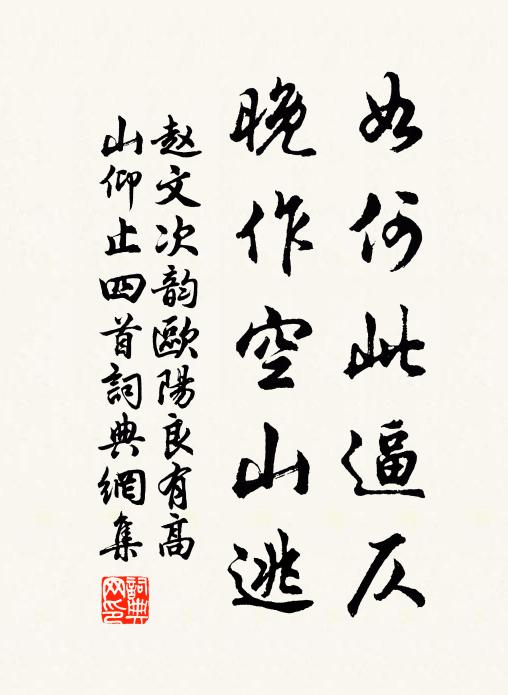 如何此逼仄
晚作空山逃
赵文次韵歐陽良有高
山仰止四首詞典網集
詞典网印